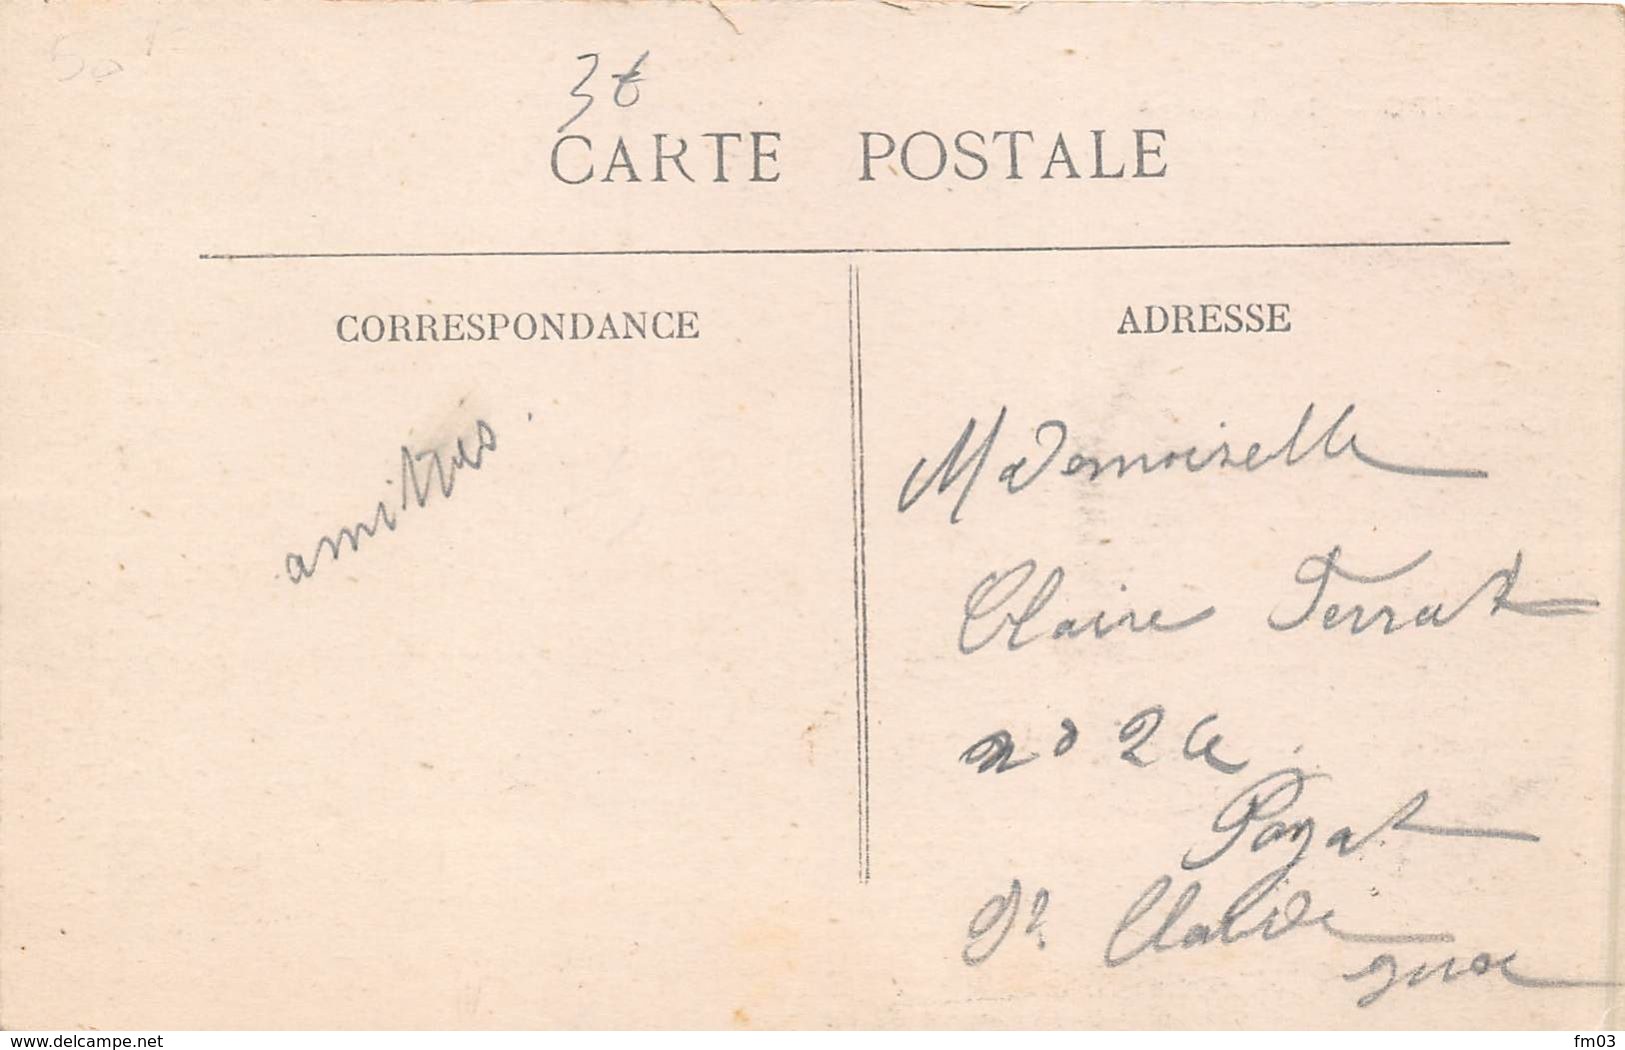 50
3t
CARTE POSTALE
CORRESPONDANCE
ADRESSE
amitiés.
Mademoiselle
Claire Terrat
chez
Payat
St Claude
Jura
www.delcampe.net
fm03